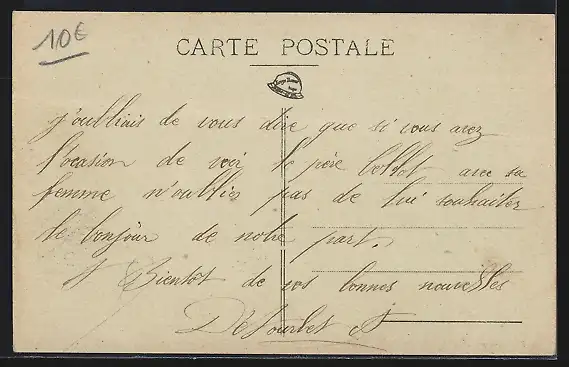 10€
CARTE POSTALE
j'oubliais de vous dire que si vous avez
l'ocasion de voir le père bellot avec sa
femme n'oublier pas de lui souhaiter
le bonjour de notre part.
A Bientot de vos bonnes nouvelles